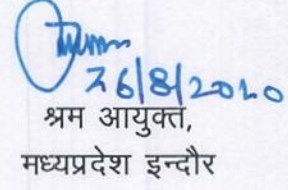 26/8/2020
श्रम आयुक्त,
मध्यप्रदेश इन्दौर